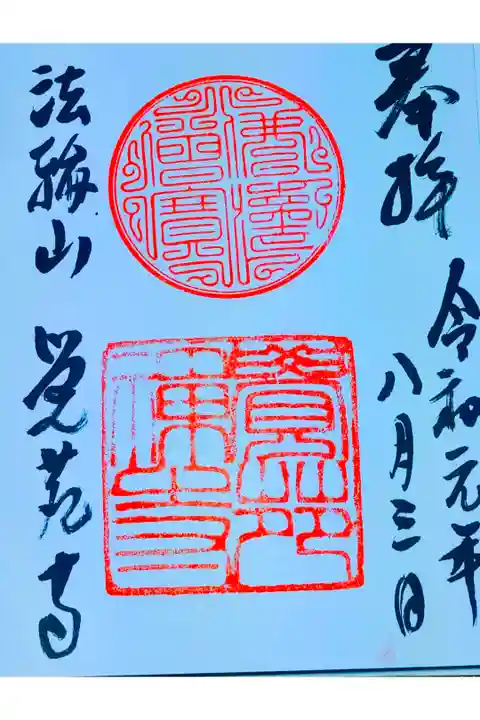 奉拝
令和元年
八月三日
佛法僧寶
法輪山　覚苑寺